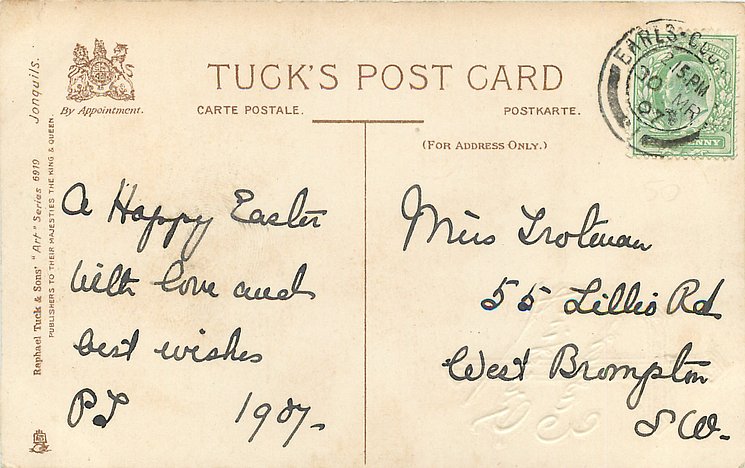 TUCK'S POST CARD
By Appointment.
CARTE POSTALE.
POSTKARTE.
(FOR ADDRESS ONLY.)
Raphael Tuck & Sons' "Art" Series 6919 Jonquils.
PUBLISHERS TO THEIR MAJESTIES THE KING & QUEEN.
EARLS-COU
2 15 PM
30 MR
07
NNY
A Happy Easter
With love and
best wishes
1907.
Miss Trotman
55 Lillie Rd
West Brompton
S W.